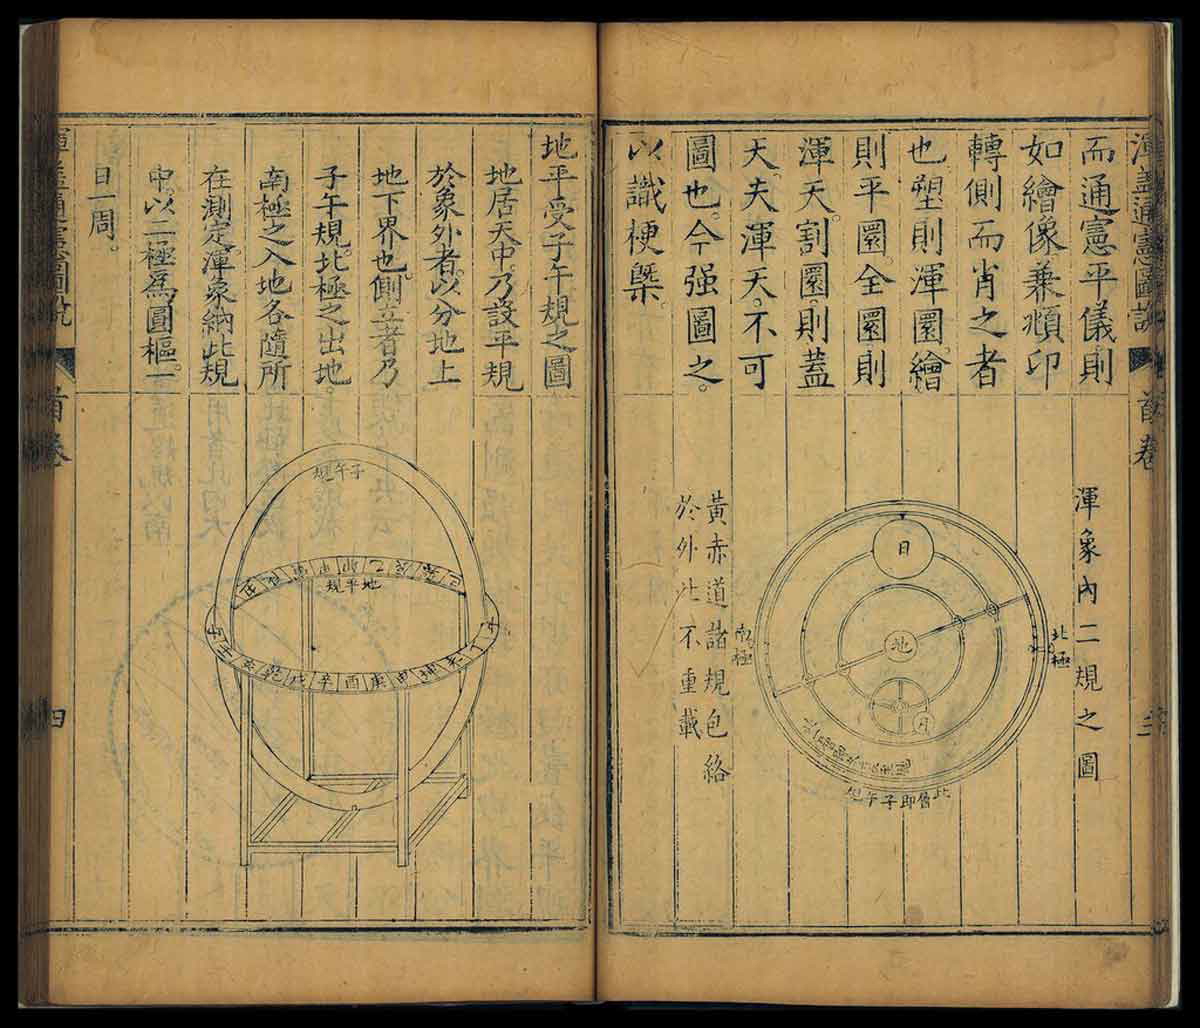 渾蓋通憲圖說
首卷
而通憲平儀則
如繪像兼頫印
轉側而肖之者
也塑則渾圜繪
則平圜全圜則
渾天割圜則蓋
天夫渾天不可
圖也今强圖之
以識梗槩
渾象內二規之圖
日
地
月
北極
南極
此舊即子午規
黃赤道諸規包絡
於外此不重載
地平受子午規之圖
地居天中乃設平規
於象外者以分地上
地下界也側立者乃
子午規北極之出地
南極之入地各隨所
在測定渾象納此規
中以二極為圜樞一
日一周
子午規
地平規
乾戌辛酉庚申坤
渾蓋通憲圖說
首卷
四